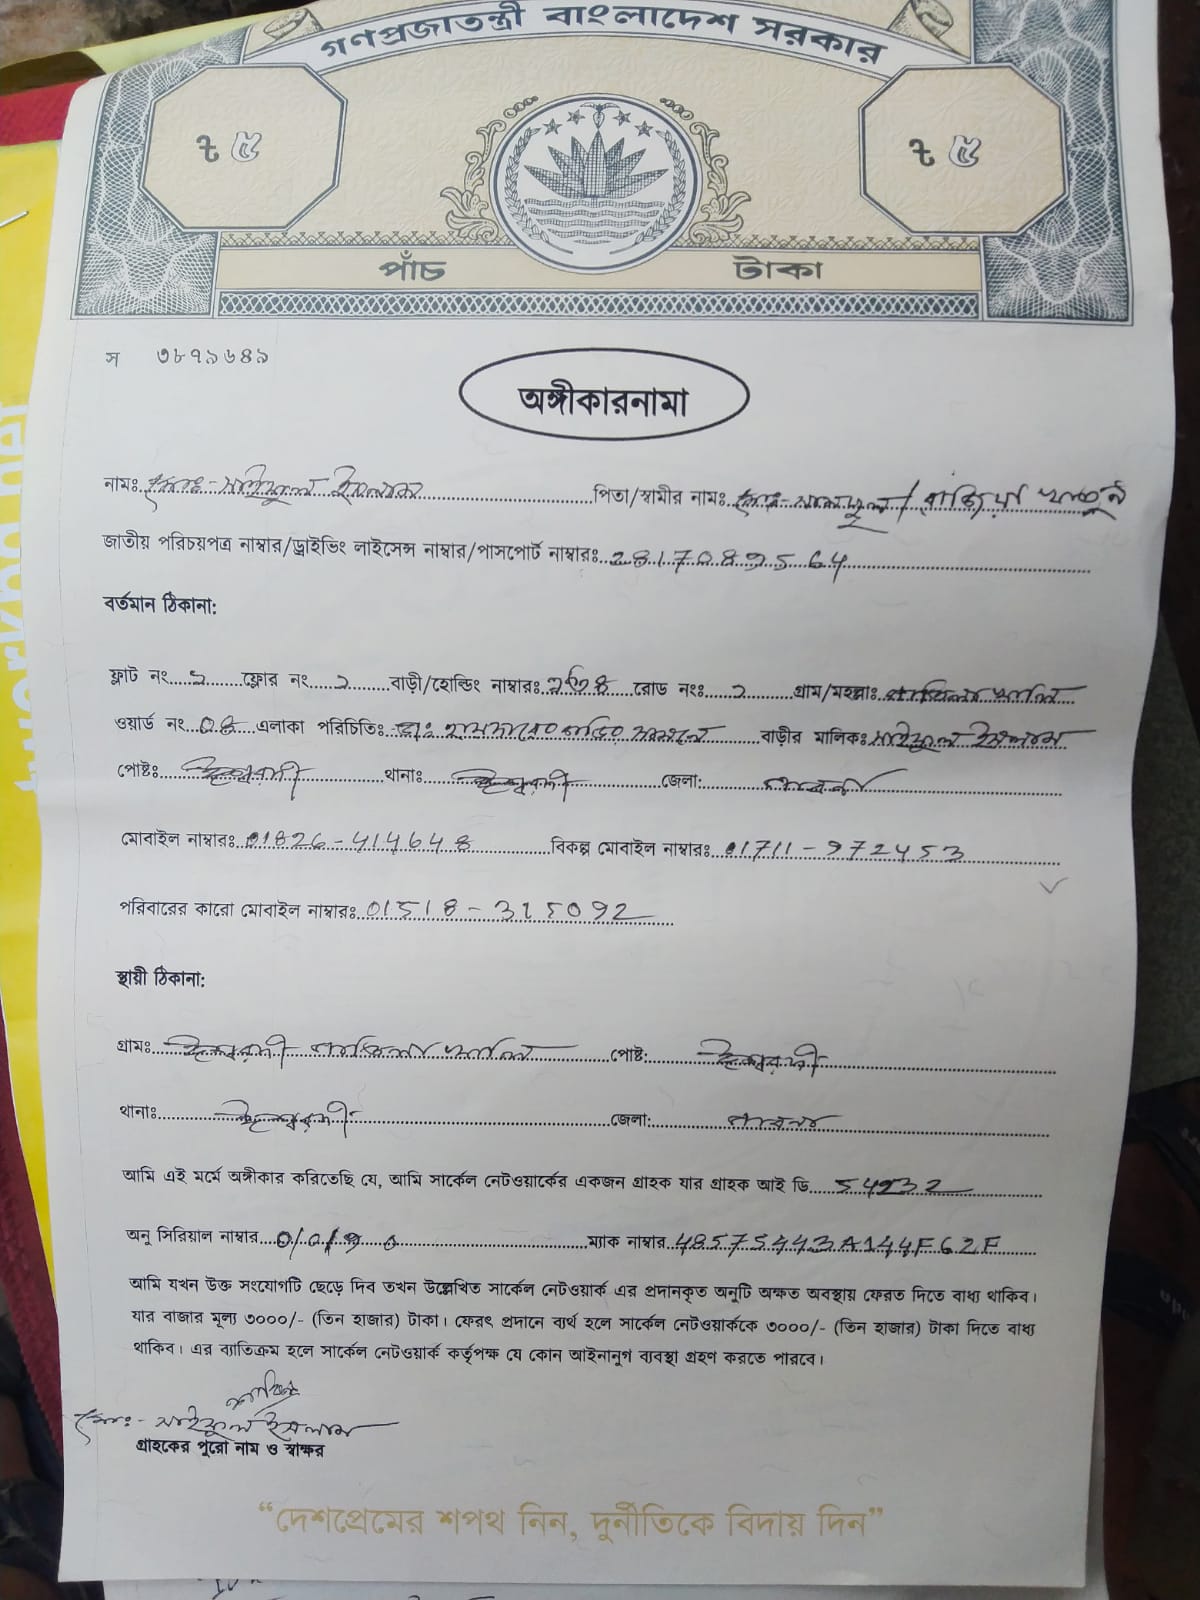 গণপ্রজাতন্ত্রী বাংলাদেশ সরকার
৳ ৫ ৳ ৫
পাঁচ টাকা
স ৩৮৭৯৬৪৯
অঙ্গীকারনামা
নামঃ মোঃ- সাইফুল ইসলাম পিতা/স্বামীর নামঃ মোঃ- / রাজিয়া খাতুন
জাতীয় পরিচয়পত্র নাম্বার/ড্রাইভিং লাইসেন্স নাম্বার/পাসপোর্ট নাম্বারঃ 2817089564
বর্তমান ঠিকানা:
ফ্লাট নং ১ ফ্লোর নং ১ বাড়ী/হোল্ডিং নাম্বারঃ রোড নংঃ ১ গ্রাম/মহল্লাঃ
ওয়ার্ড নং ০৪ এলাকা পরিচিতিঃ বাড়ীর মালিকঃ সাইফুল ইসলাম
পোষ্টঃ ঈশ্বরদী থানাঃ ঈশ্বরদী জেলা: পাবনা
মোবাইল নাম্বারঃ 01826-414648 বিকল্প মোবাইল নাম্বারঃ 01711-972453
পরিবারের কারো মোবাইল নাম্বারঃ 01518-315092
স্থায়ী ঠিকানা:
গ্রামঃ ঈশ্বরদী পোষ্ট: ঈশ্বরদী
থানাঃ ঈশ্বরদী জেলা: পাবনা
আমি এই মর্মে অঙ্গীকার করিতেছি যে, আমি সার্কেল নেটওয়ার্কের একজন গ্রাহক যার গ্রাহক আই ডি 54932
অনু সিরিয়াল নাম্বার ম্যাক নাম্বার 48575443A144F62F
আমি যখন উক্ত সংযোগটি ছেড়ে দিব তখন উল্লেখিত সার্কেল নেটওয়ার্ক এর প্রদানকৃত অনুটি অক্ষত অবস্থায় ফেরত দিতে বাধ্য থাকিব।
যার বাজার মূল্য ৩০০০/- (তিন হাজার) টাকা। ফেরৎ প্রদানে ব্যর্থ হলে সার্কেল নেটওয়ার্ককে ৩০০০/- (তিন হাজার) টাকা দিতে বাধ্য
থাকিব। এর ব্যতিক্রম হলে সার্কেল নেটওয়ার্ক কর্তৃপক্ষ যে কোন আইনানুগ ব্যবস্থা গ্রহণ করতে পারবে।
মোঃ- সাইফুল ইসলাম
গ্রাহকের পুরো নাম ও স্বাক্ষর
“দেশপ্রেমের শপথ নিন, দুর্নীতিকে বিদায় দিন”